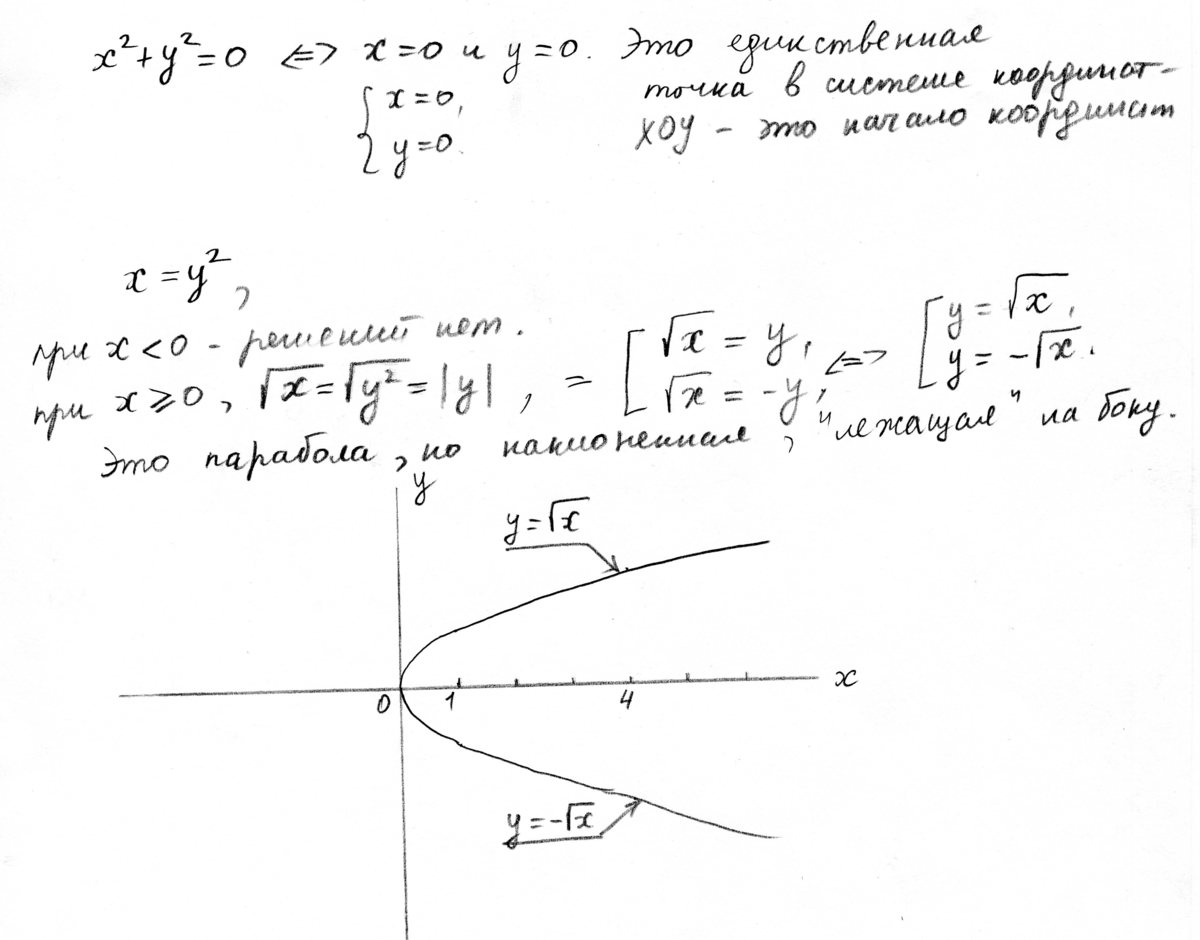 x²+y²=0 <=> x=0 и y=0. Это единственная
{ x=0, точка в системе координат-
y=0. XOY – это начало координат
x=y²,
при x<0 – решений нет.
при x≥0, √x=√y²=|y|, = [ √x = y, √x = -y, <=> [ y=√x, y=-√x.
Это парабола, но наклоненная, "лежащая" на боку.
y
y=√x
x
0 1 4
y=-√x